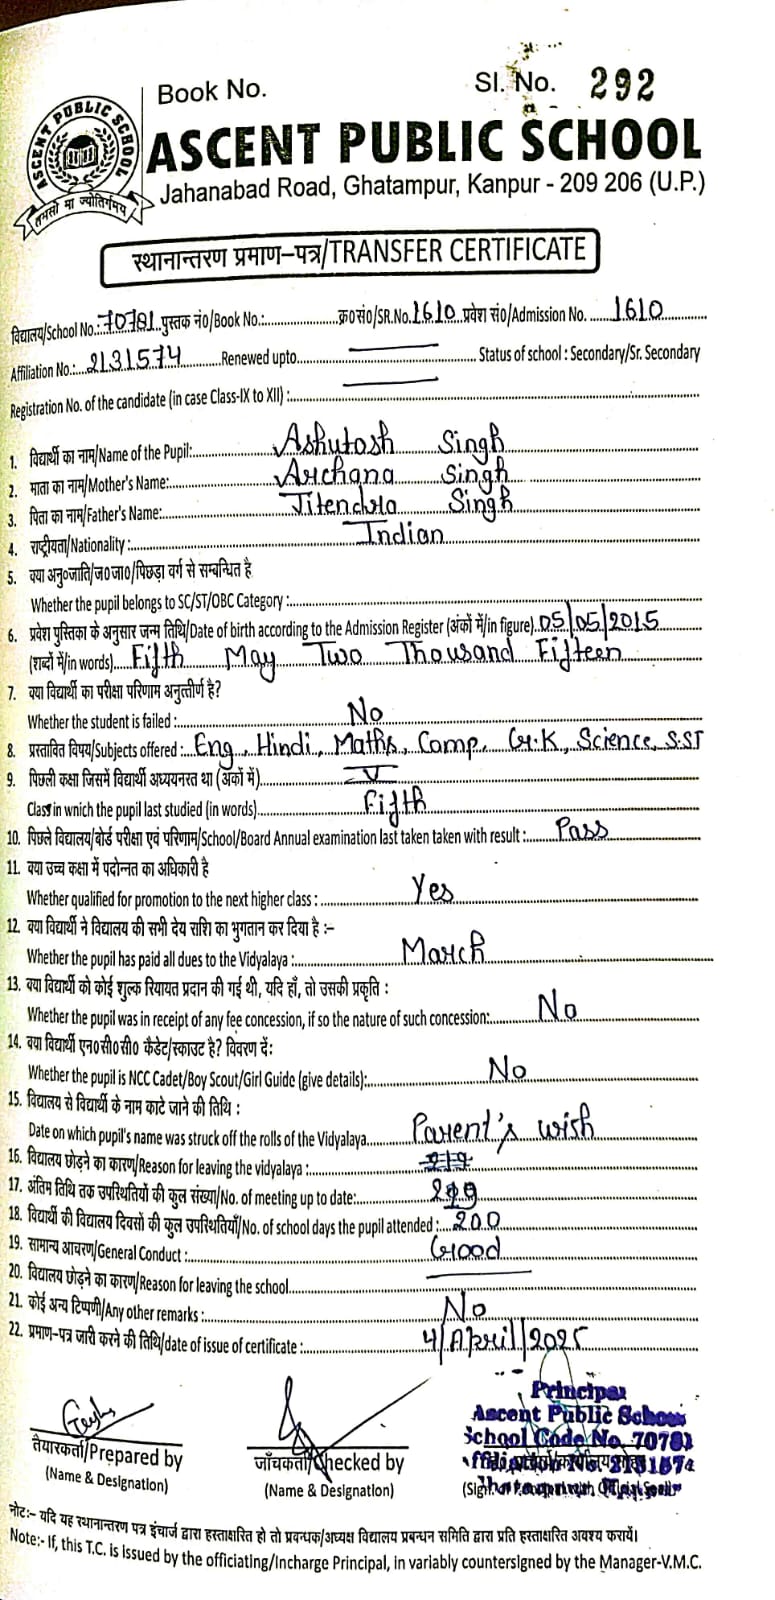 Book No.
Sl. No. 292
ASCENT PUBLIC SCHOOL
तमसो मा ज्योतिर्गमय
ASCENT PUBLIC SCHOOL
Jahanabad Road, Ghatampur, Kanpur - 209 206 (U.P.)
स्थानान्तरण प्रमाण-पत्र/TRANSFER CERTIFICATE
विद्यालय/School No.: 70781 पुस्तक नं०/Book No.:............ क्र०सं०/SR.No. 1610 प्रवेश सं०/Admission No. ...... 1610
Affiliation No.: 2131574 Renewed upto............ Status of school : Secondary/Sr. Secondary
Registration No. of the candidate (in case Class-IX to XII) :............
1. विद्यार्थी का नाम/Name of the Pupil: Ashutosh Singh
2. माता का नाम/Mother's Name: Archana Singh
3. पिता का नाम/Father's Name: Jitendra Singh
4. राष्ट्रीयता/Nationality : Indian
5. क्या अनु०जाति/ज०जा०/पिछड़ा वर्ग से सम्बन्धित है
Whether the pupil belongs to SC/ST/OBC Category :............
6. प्रवेश पुस्तिका के अनुसार जन्म तिथि/Date of birth according to the Admission Register (अंकों में/in figure). 05/05/2015
(शब्दों में/in words).... Fifth May Two Thousand Fifteen
7. क्या विद्यार्थी का परीक्षा परिणाम अनुत्तीर्ण है?
Whether the student is failed : No
8. प्रस्तावित विषय/Subjects offered : Eng, Hindi, Maths, Comp, G.K, Science, S.ST
9. पिछली कक्षा जिसमें विद्यार्थी अध्ययनरत था (अंकों में) V
Class in wnich the pupil last studied (in words) Fifth
10. पिछले विद्यालय/बोर्ड परीक्षा एवं परिणाम/School/Board Annual examination last taken taken with result : Pass
11. क्या उच्च कक्षा में पदोन्नत का अधिकारी है
Whether qualified for promotion to the next higher class : Yes
12. क्या विद्यार्थी ने विद्यालय की सभी देय राशि का भुगतान कर दिया है :-
Whether the pupil has paid all dues to the Vidyalaya : March
13. क्या विद्यार्थी को कोई शुल्क रियायत प्रदान की गई थी, यदि हाँ, तो उसकी प्रकृति :
Whether the pupil was in receipt of any fee concession, if so the nature of such concession: No
14. क्या विद्यार्थी एन०सी०सी० कैडेट/स्काउट है? विवरण दें:
Whether the pupil is NCC Cadet/Boy Scout/Girl Guide (give details): No
15. विद्यालय से विद्यार्थी के नाम काटे जाने की तिथि :
Date on which pupil's name was struck off the rolls of the Vidyalaya Parent's wish
16. विद्यालय छोड़ने का कारण/Reason for leaving the vidyalaya :
17. अंतिम तिथि तक उपस्थितियों की कुल संख्या/No. of meeting up to date:
18. विद्यार्थी की विद्यालय दिवसों की कुल उपस्थितियाँ/No. of school days the pupil attended : 200
19. सामान्य आचरण/General Conduct : Good
20. विद्यालय छोड़ने का कारण/Reason for leaving the school
21. कोई अन्य टिप्पणी/Any other remarks : No
22. प्रमाण-पत्र जारी करने की तिथि/date of issue of certificate : 4/April/2025
Principal
Ascent Public School
School Code No. 70781
तैयारकर्ता/Prepared by
(Name & Designation)
जाँचकर्ता/Checked by
(Name & Designation)
नोट:- यदि यह स्थानान्तरण पत्र इंचार्ज द्वारा हस्ताक्षरित हो तो प्रबन्धक/अध्यक्ष विद्यालय प्रबन्धन समिति द्वारा प्रति हस्ताक्षरित अवश्य करायें।
Note:- If, this T.C. is issued by the officiating/Incharge Principal, in variably countersigned by the Manager-V.M.C.